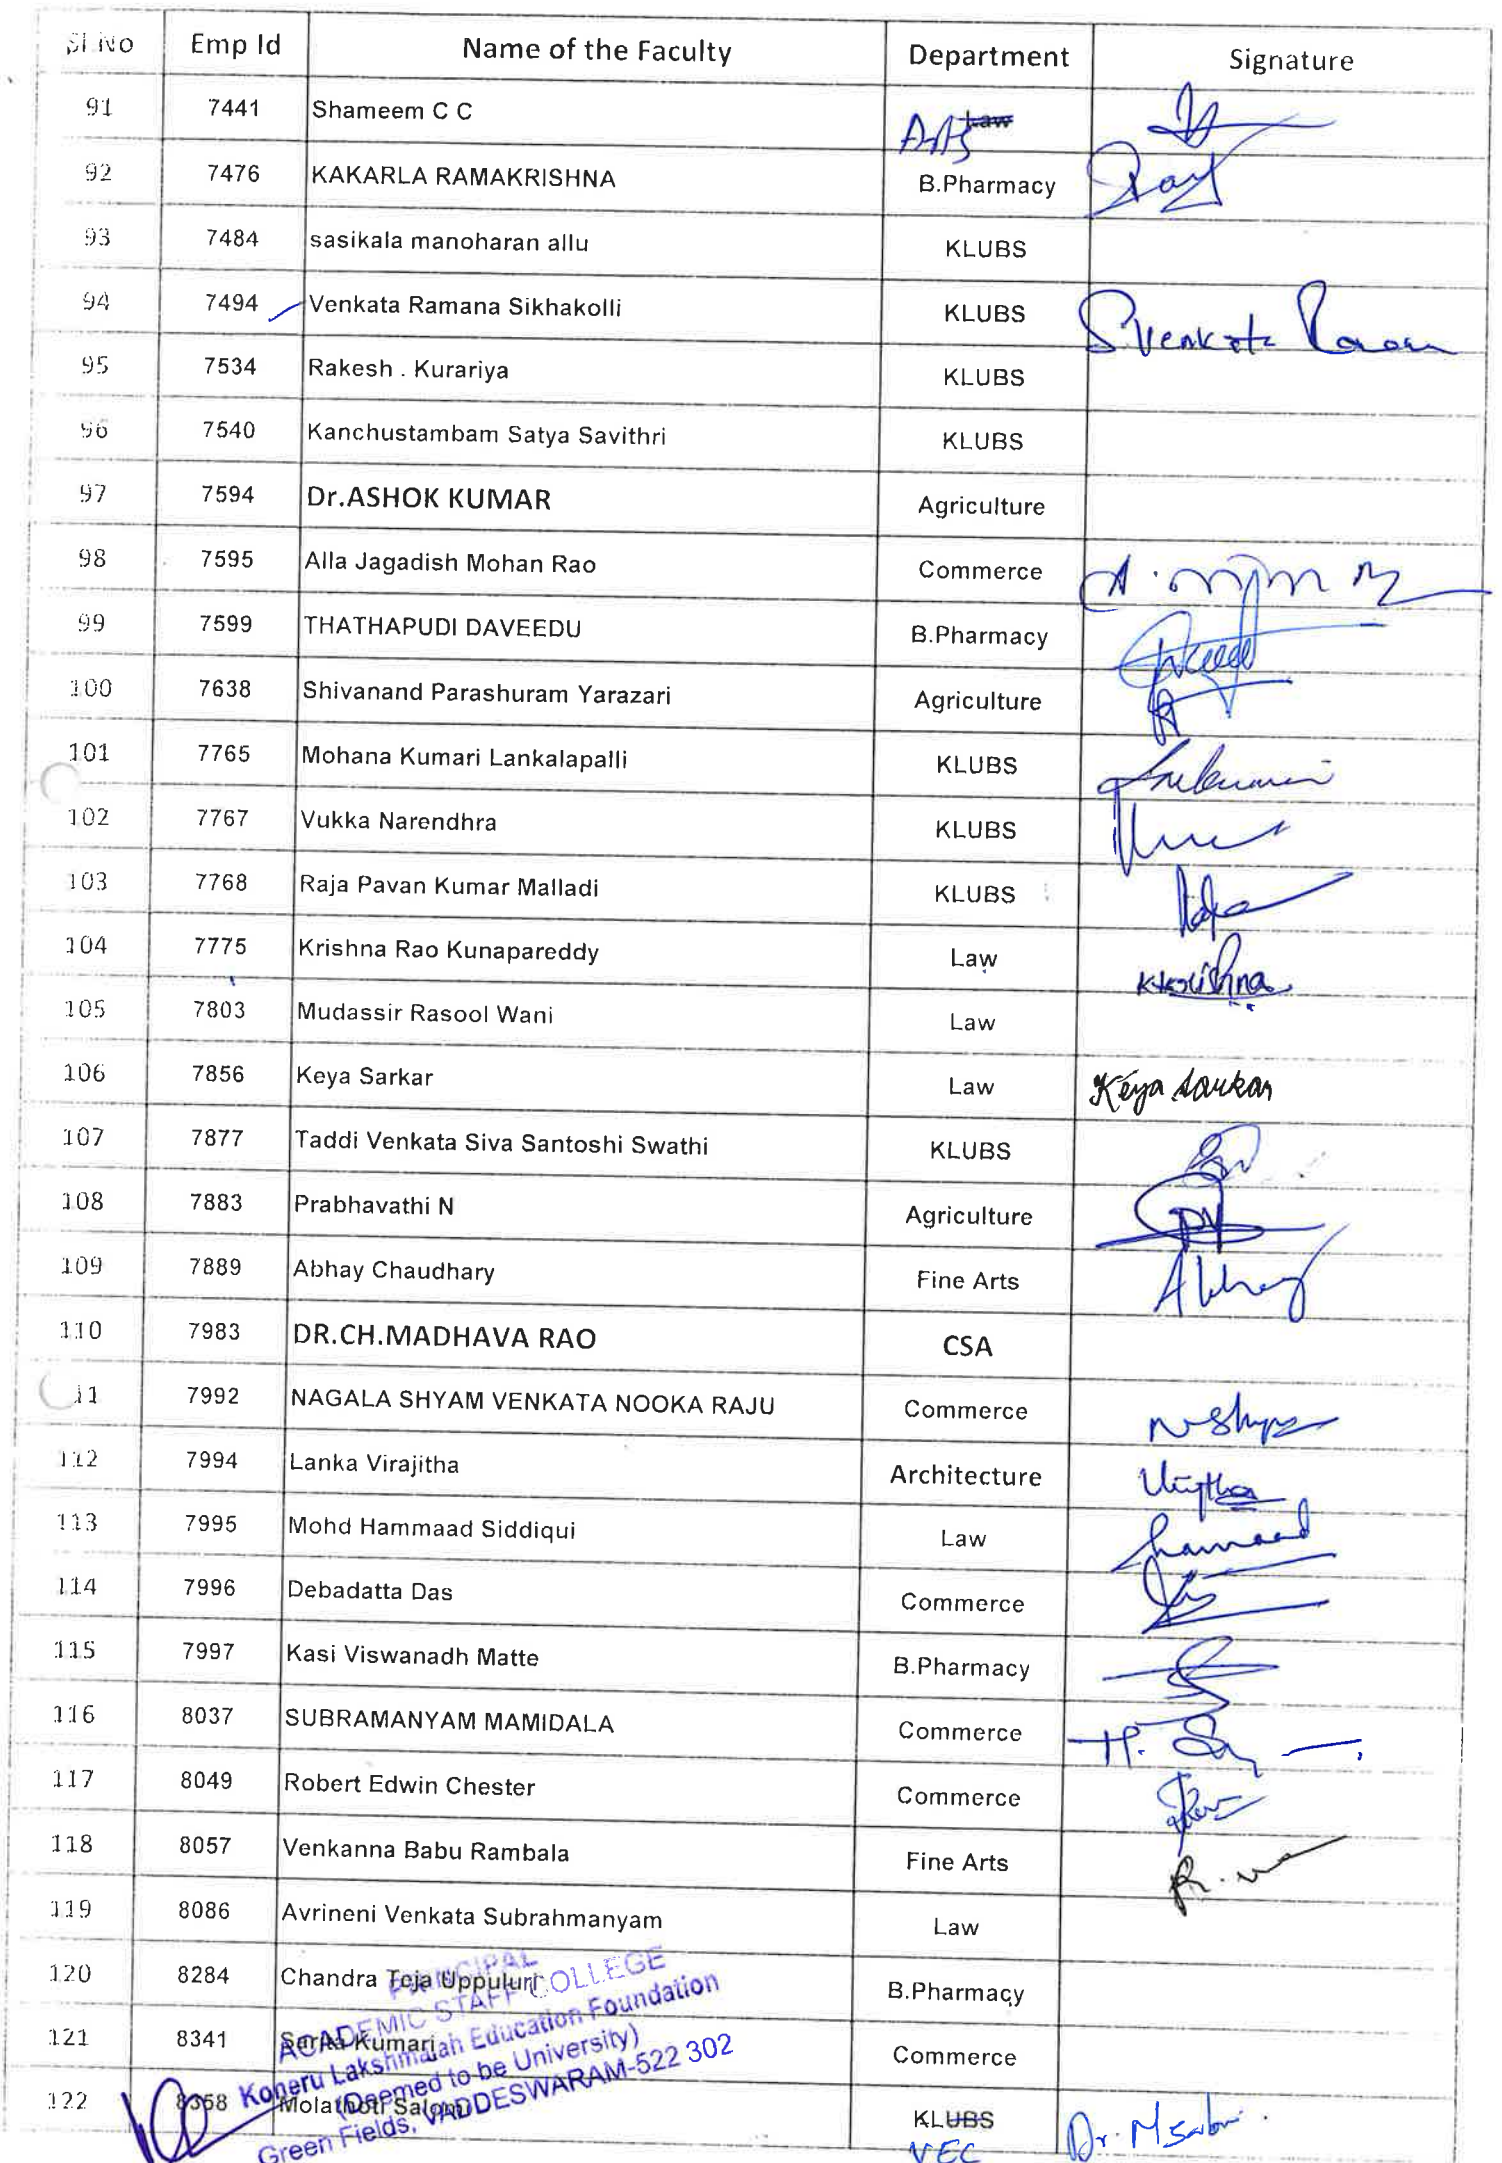 Sl.No Emp Id Name of the Faculty Department Signature
91 7441 Shameem C C Arts Law
92 7476 KAKARLA RAMAKRISHNA B.Pharmacy
93 7484 sasikala manoharan allu KLUBS
94 7494 Venkata Ramana Sikhakolli KLUBS S.Venkata Raman
95 7534 Rakesh . Kurariya KLUBS
96 7540 Kanchustambam Satya Savithri KLUBS
97 7594 Dr.ASHOK KUMAR Agriculture
98 7595 Alla Jagadish Mohan Rao Commerce
99 7599 THATHAPUDI DAVEEDU B.Pharmacy
100 7638 Shivanand Parashuram Yarazari Agriculture
101 7765 Mohana Kumari Lankalapalli KLUBS
102 7767 Vukka Narendhra KLUBS
103 7768 Raja Pavan Kumar Malladi KLUBS
104 7775 Krishna Rao Kunapareddy Law
105 7803 Mudassir Rasool Wani Law
106 7856 Keya Sarkar Law Keya Sarkar
107 7877 Taddi Venkata Siva Santoshi Swathi KLUBS
108 7883 Prabhavathi N Agriculture
109 7889 Abhay Chaudhary Fine Arts Abhay
110 7983 DR.CH.MADHAVA RAO CSA
11 7992 NAGALA SHYAM VENKATA NOOKA RAJU Commerce
112 7994 Lanka Virajitha Architecture
113 7995 Mohd Hammaad Siddiqui Law hamaad
114 7996 Debadatta Das Commerce
115 7997 Kasi Viswanadh Matte B.Pharmacy
116 8037 SUBRAMANYAM MAMIDALA Commerce
117 8049 Robert Edwin Chester Commerce
118 8057 Venkanna Babu Rambala Fine Arts
119 8086 Avrineni Venkata Subrahmanyam Law
120 8284 Chandra Teja Uppuluri B.Pharmacy
121 8341 Sarita Kumari Commerce
122 8358 Molathoti Salomi KLUBS Dr. M
VEC
PRINCIPAL
ACADEMIC STAFF COLLEGE
Koneru Lakshmaiah Education Foundation
(Deemed to be University)
Green Fields, VADDESWARAM-522 302